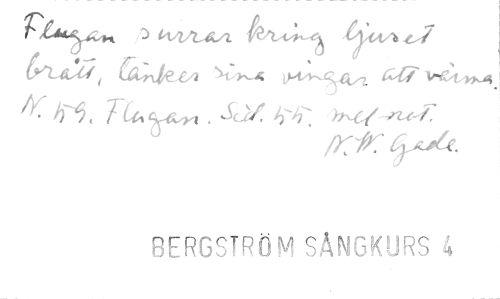 Flugan surrar kring ljuset
brått, tänker sina vingar att värma.
N. 59. Flugan. Sid. 55. mel-not.
N. W. Gade.
BERGSTRÖM SÅNGKURS 4